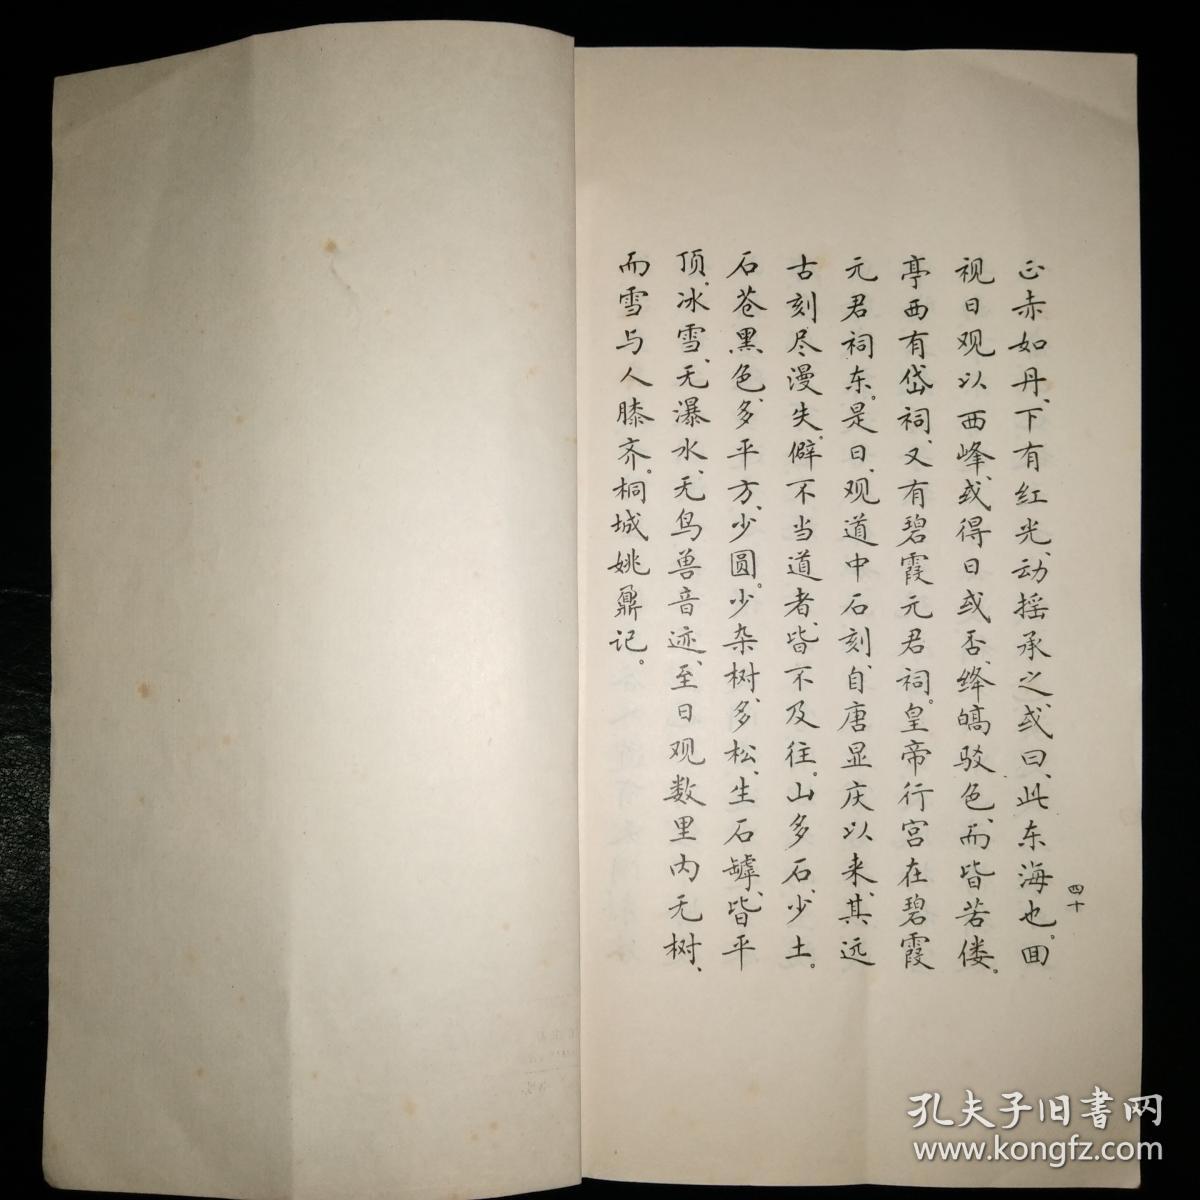 正赤如丹、下有红光、动摇承之、或曰、此东海也。回
视日观以西峰、或得日或否、绛皜驳色、而皆若偻。
亭西有岱祠、又有碧霞元君祠。皇帝行宫在碧霞
元君祠东。是日、观道中石刻、自唐显庆以来、其远
古刻尽漫失。僻不当道者、皆不及往。山多石、少土。
石苍黑色、多平方、少圆。少杂树、多松、生石罅、皆平
顶。冰雪、无瀑水、无鸟兽音迹、至日观数里内无树、
而雪与人膝齐。桐城姚鼐记。
四十
孔夫子旧书网
www.kongfz.com